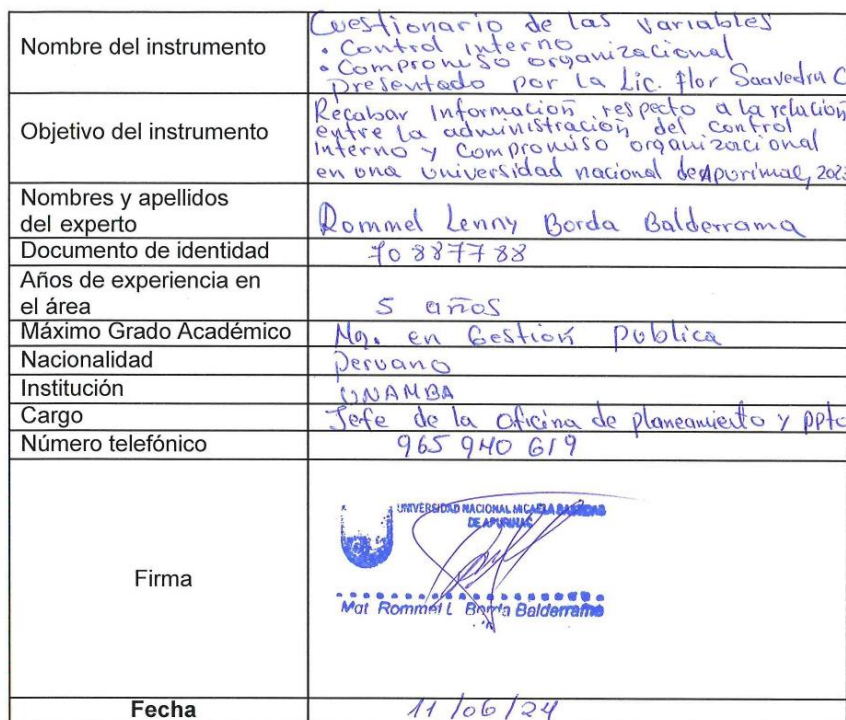 Nombre del instrumento
Cuestionario de las variables
• Control interno
• Compromiso organizacional
Presentado por la Lic. Flor Saavedra C
Objetivo del instrumento
Recabar información respecto a la relación
entre la administración del control
interno y compromiso organizacional
en una universidad nacional de Apurimac, 202
Nombres y apellidos
del experto
Rommel Lenny Borda Balderrama
Documento de identidad
70887788
Años de experiencia en
el área
5 años
Máximo Grado Académico
Mg. en Gestión publica
Nacionalidad
peruano
Institución
UNAMBA
Cargo
Jefe de la oficina de planeamiento y ppto
Número telefónico
965 940 619
Firma
UNIVERSIDAD NACIONAL MICAELA BASTIDAS
DE APURIMAC
Mat Rommel L Borda Balderrama
Fecha
11/06/24